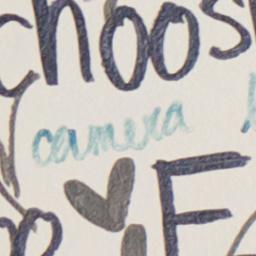 choos
camera
F